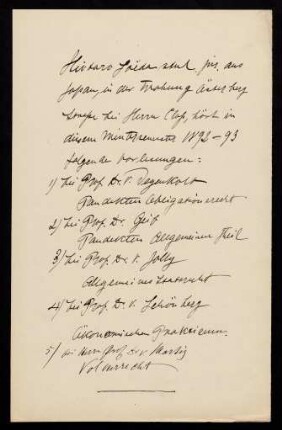 Hiotaro Höida stud. jur. aus
Japan, in der Wohnung
bei Herrn hört in
diesem Wintersemester 1892-93
folgende Vorlesungen:
1) bei Prof. Dr. v. Degenkolb
Pandekten Obligationenrecht
2) bei Prof. Dr. Geib
Pandekten Allgemeiner Theil
3) bei Prof. Dr. v. Jolly
Allgemeines Staatsrecht
4) bei Prof. Dr. v. Schönberg
Ökonomischen Praktikum.
5) bei Herrn Prof. Dr. v. Martiz
Völkerrecht